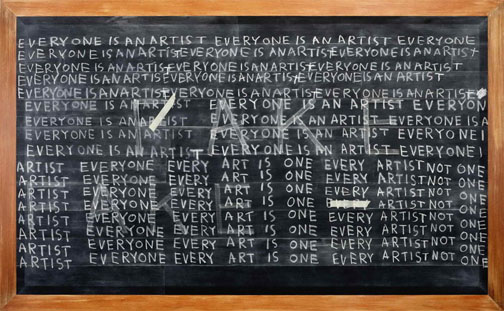 EVERYONE IS AN ARTIST EVERYONE IS AN ARTIST EVERYONE
EVERYONE IS AN ARTIST EVERYONE IS AN ARTIST EVERYONE IS AN ARTIST
EVERYONE IS AN ARTIST EVERYONE IS AN ARTIST EVERYONE IS AN ARTIST
EVERYONE IS AN ARTIST EVERYONE IS AN ARTIST EVERYONE IS AN ARTIST
EVERYONE IS AN ARTIST EVERYONE IS AN ARTIST EVERYONE IS AN ARTIST
EVERYONE IS AN ARTIST EVERYONE IS AN ARTIST EVERYON
EVERYONE IS AN ARTIST EVERYONE IS AN ARTIST EVERYONE
EVERYONE IS AN ARTIST EVERYONE IS AN ARTIST EVERYONE I
EVERYONE IS AN ARTIST EVERYONE IS AN ARTIST EVERYONE I
ARTIST EVERYONE EVERY ART IS ONE EVERY ARTIST NOT ONE
ARTIST EVERYONE EVERY ART IS ONE EVERY ARTIST NOT ONE
ARTIST EVERYONE EVERY ART IS ONE EVERY ARTIST NOT ONE
ARTIST EVERYONE EVERY ART IS ONE EVERY ARTIST NOT ONE
ARTIST EVERYONE EVERY ART IS ONE EVERY ARTIST NOT ONE
ARTIST EVERYONE EVERY ART IS ONE EVERY ARTIST NOT ONE
ARTIST EVERYONE EVERY ART IS ONE EVERY ARTIST NOT ONE
ARTIST EVERYONE EVERY ART IS ONE EVERY ARTIST NOT ONE